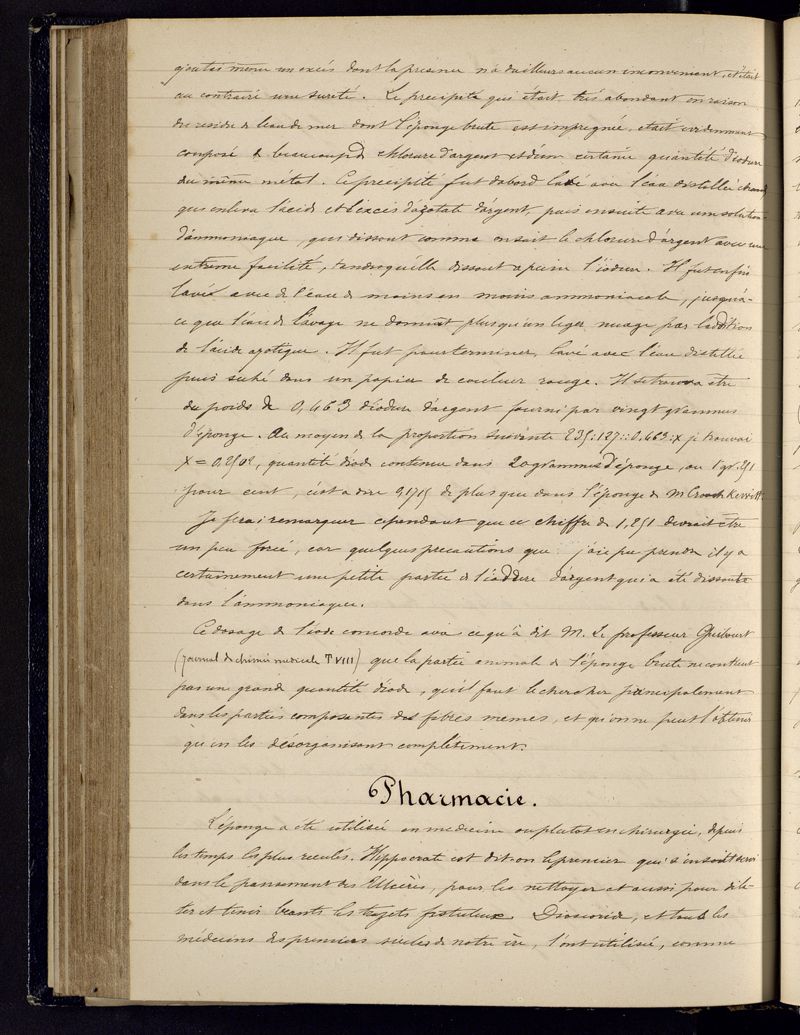 ajoutai même un excès dont la présence n'a d'ailleurs aucun inconvénient, c'était
au contraire une sureté. Le précipité qui était très abondant en raison
du residu de l'eau de mer dont l'éponge brute est impregnée, était evidemment
composé de beaucoup de chlorure d'argent et d'une certaine quantité d'iodure
du même métal. Ce precipité fut d'abord lavé avec l'eau distillée chaude
qui enleva l'acide et l'excès d'azotate d'argent, puis ensuite avec une solution
d'ammoniaque, qui dissout comme on sait le chlorure d'argent avec une
extreme facilité, tandis qu'elle dissout a peine l'iodure. Il fut enfin
lavé avec de l'eau de moins en moins ammoniacale, jusqu'a-
ce que l'eau de lavage ne donnât plus qu'un leger nuage par l'addition
de l'acide azotique. Il fut pour terminer, lavé avec l'eau distillée
puis séché dans un papier de couleur rouge. Il se trouva être
du poids de 0,463 d'iodure d'argent fourni par vingt grammes
d'éponge. Au moyen de la proportion suivante 235:127::0.463:x je trouvai
x = 0.2502, quantité d'iode contenue dans 20 grammes d'éponge, ou 1 gr. 251
pour cent, c'est a dire de plus que dans l'éponge de M.
Je ferai remarquer cependant que ce chiffre de 1,251 devrait être
un peu forcé, car quelques precautions que j'aie pu prendre il y a
certainement une petite partie de l'iodure d'argent qui a été dissoute
dans l'ammoniaque.
Ce dosage de l'iode concorde avec ce qu'a dit M. Le professeur Guibourt
(Journal de chimie médicale T VIII) que la partie animale de l'éponge brute ne contient
pas une grande quantité d'iode, qu'il faut le chercher principalement
dans les parties composantes des fibres memes, et qu'on ne peut l'obtenir
qu'en les désorganisant complètement.
Pharmacie.
L'éponge a été utilisée en medecine ou plutot en chirurgie, depuis
les temps les plus reculés. Hippocrate est dit-on le premier qui s'en soit servi
dans le pansement des Ulcères, pour les nettoyer et aussi pour dila-
ter et tenir béants les trajets fistuleux. Dioscoride, et tous les
médecins des premiers siecles de notre ère, l'ont utilisée, comme